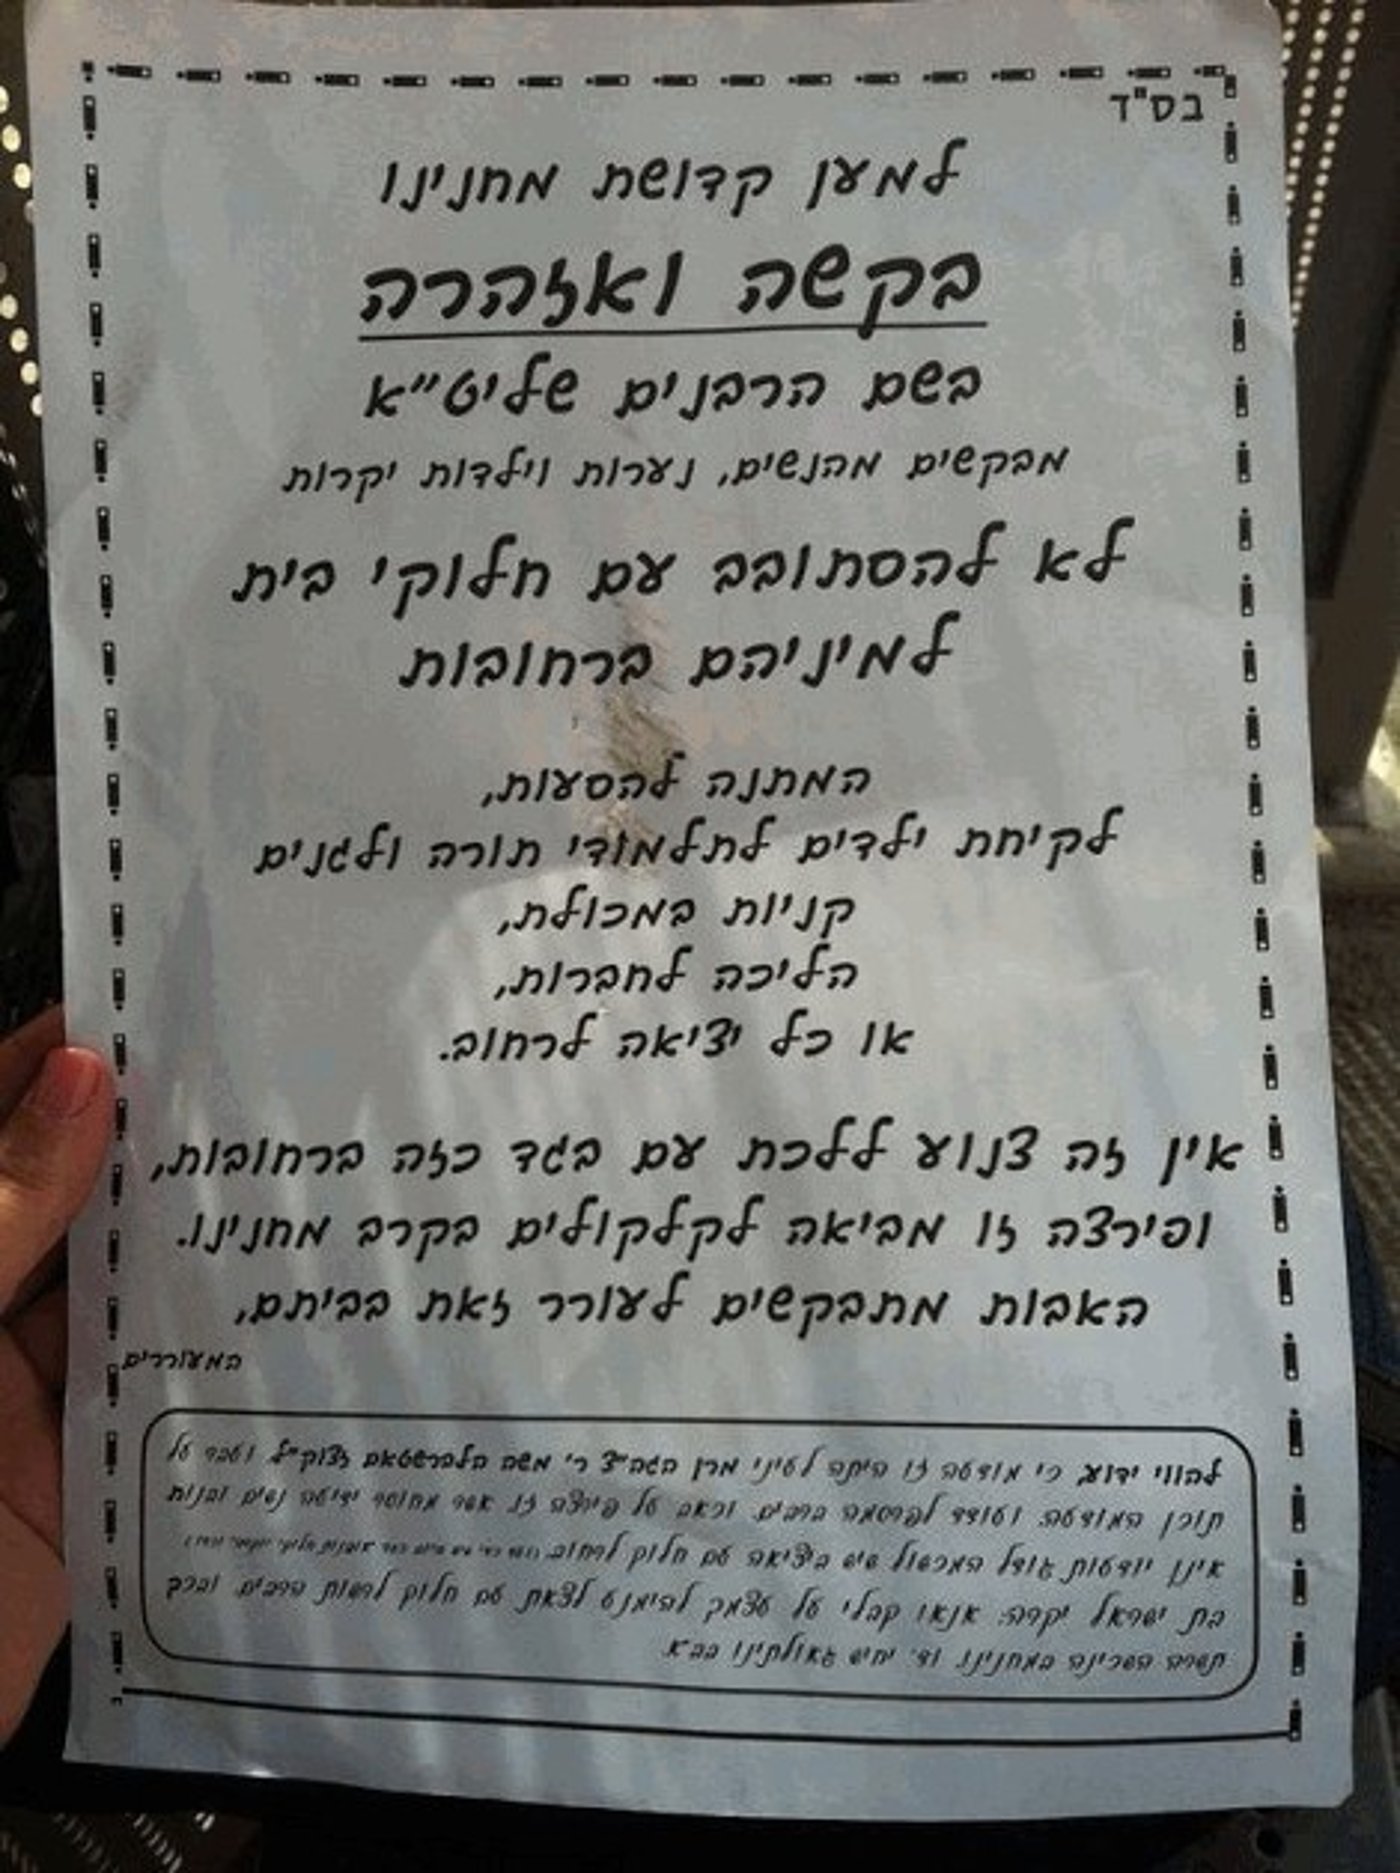 בס"ד
למען קדושת מחנינו
בקשה ואזהרה
בשם הרבנים שליט"א
מבקשים מהנשים, נערות וילדות יקרות
לא להסתובב עם חלוקי בית
למיניהם ברחובות
המתנה להסעות,
לקיחת ילדים לתלמודי תורה ולגנים
קניות במכולת,
הליכה לחברות,
או כל יציאה לרחוב.
אין זה צנוע ללכת עם בגד כזה ברחובות,
ופירצה זו מביאה לקלקולים בקרב מחנינו.
האבות מתבקשים לעורר זאת בביתם,
המעוררים
להווי ידוע, כי מודעה זו היתה לעיני מרן הגה"צ ר' משה הלברשטאם זצוק"ל, ועבר על
תוכן המודעה, ועודד לפרסמה ברבים. וכאב על פירצה זו אשר מחוסר ידיעה נשים ובנות
אינן יודעות גודל המכשול שיש ביציאה עם חלוק לרחוב.
בת ישראל יקרה: אנא! קבלי על עצמך להימנע לצאת עם חלוק לרשות הרבים, ובכך
תשרה השכינה במחנינו, וד' יחיש גאולתינו בב"א